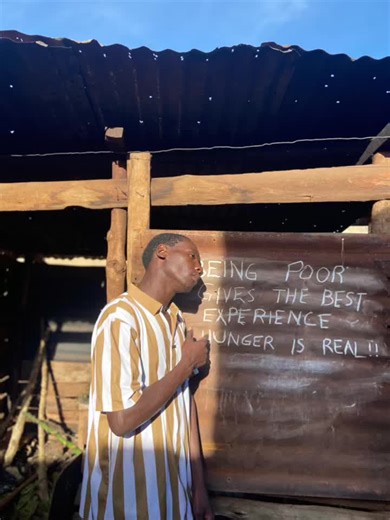 BEING POOR
GIVES THE BEST
EXPERIENCE
HUNGER IS REAL!!